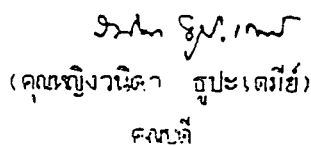 (คุณหญิงวนิดา ธูปะเตมีย์)
คณบดี